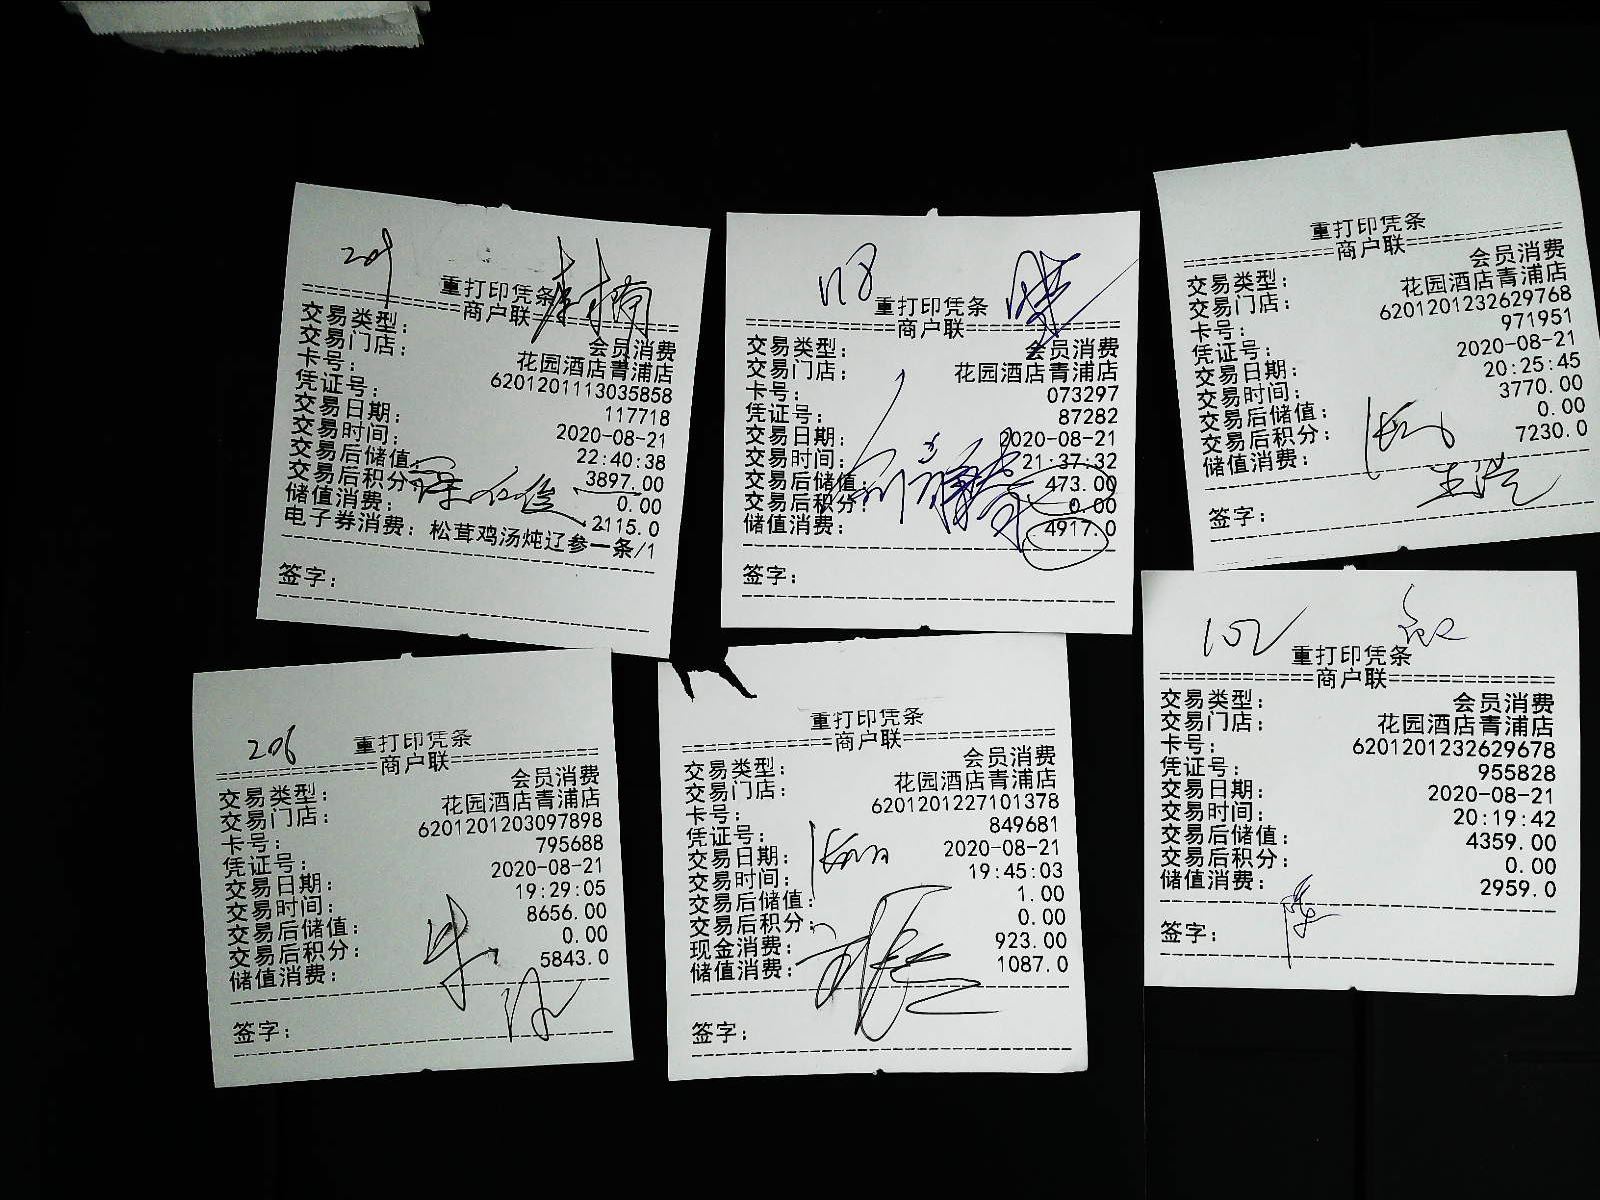 209
重打印凭条
============商户联============
交易类型: 会员消费
交易门店: 花园酒店青浦店
卡号: 6201201113035858
凭证号: 117718
交易日期: 2020-08-21
交易时间: 22:40:38
交易后储值: 3897.00
交易后积分: 0.00
储值消费: 2115.0
电子券消费: 松茸鸡汤炖辽参一条/1
签字:
118
重打印凭条
============商户联============
交易类型: 会员消费
交易门店: 花园酒店青浦店
卡号: 073297
凭证号: 87282
交易日期: 2020-08-21
交易时间: 21:37:32
交易后储值: 473.00
交易后积分: 0.00
储值消费: 4917.0
签字:
重打印凭条
============商户联============
交易类型: 会员消费
交易门店: 花园酒店青浦店
卡号: 6201201232629768
凭证号: 971951
交易日期: 2020-08-21
交易时间: 20:25:45
交易后储值: 3770.00
交易后积分: 0.00
储值消费: 7230.0
签字:
206
重打印凭条
============商户联============
交易类型: 会员消费
交易门店: 花园酒店青浦店
卡号: 6201201203097898
凭证号: 795688
交易日期: 2020-08-21
交易时间: 19:29:05
交易后储值: 8656.00
交易后积分: 0.00
储值消费: 5843.0
签字:
重打印凭条
============商户联============
交易类型: 会员消费
交易门店: 花园酒店青浦店
卡号: 6201201227101378
凭证号: 849681
交易日期: 2020-08-21
交易时间: 19:45:03
交易后储值: 1.00
交易后积分: 0.00
现金消费: 923.00
储值消费: 1087.0
签字:
102
重打印凭条
============商户联============
交易类型: 会员消费
交易门店: 花园酒店青浦店
卡号: 6201201232629678
凭证号: 955828
交易日期: 2020-08-21
交易时间: 20:19:42
交易后储值: 4359.00
交易后积分: 0.00
储值消费: 2959.0
签字: